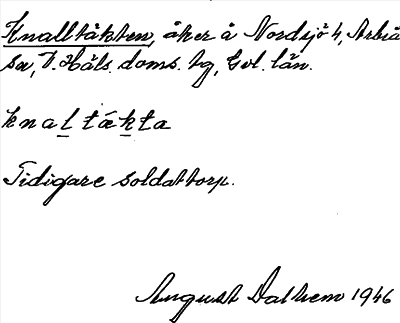 Knalltäkten, åker å Nordsjö 4, Arbrå
sn, V. Häls. doms. tg, Gvl. län.
knaltäkta
Tidigare soldattorp.
August Dalhem 1946